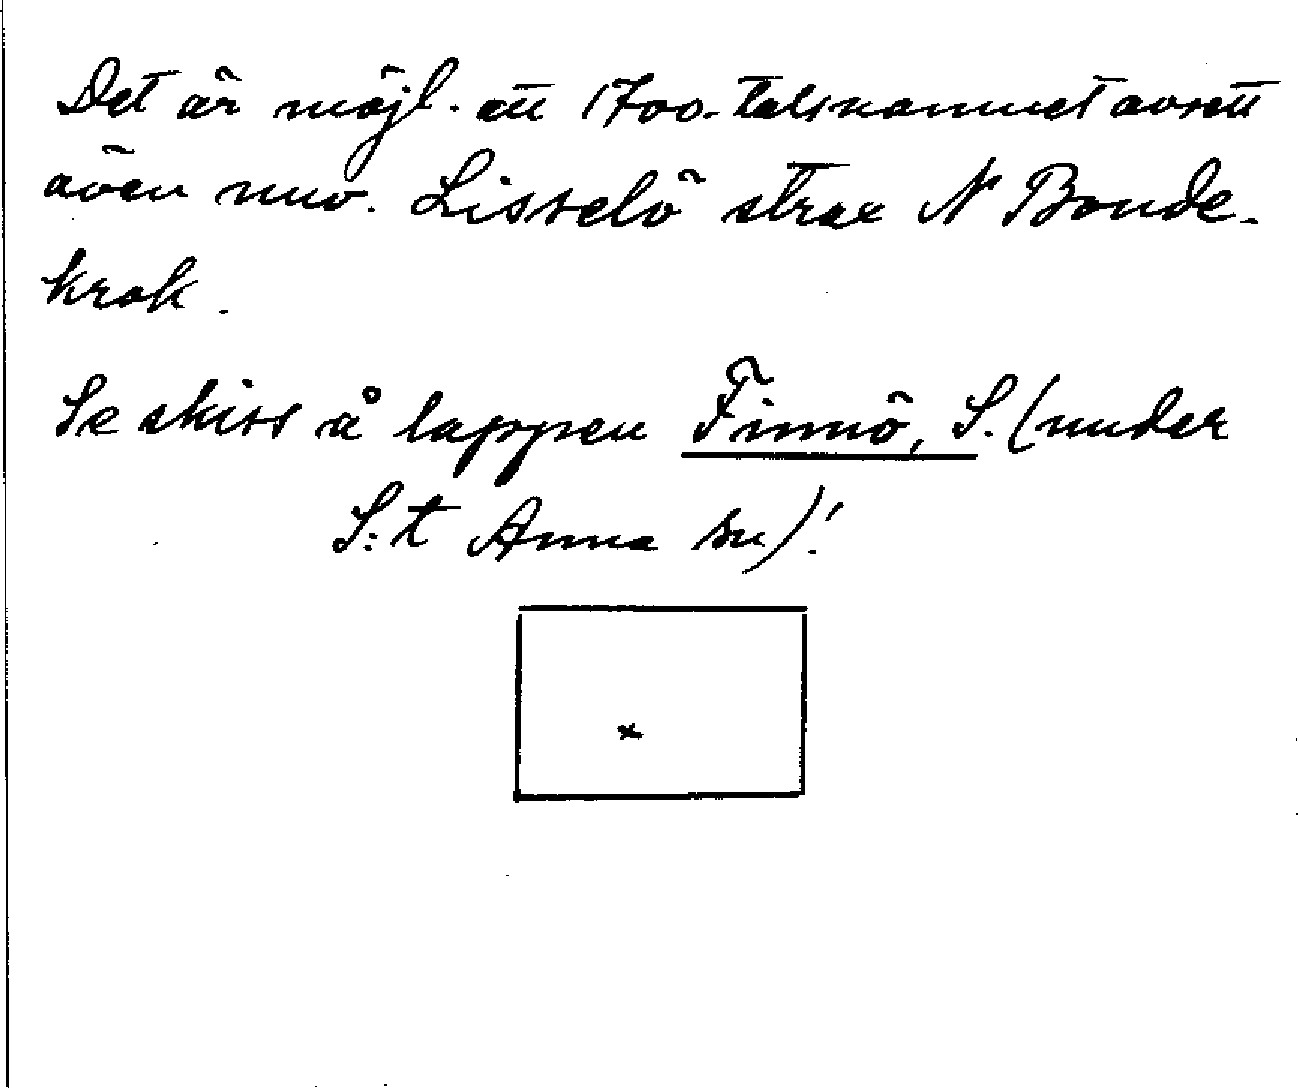 Det är möjl. att 1700-talsnamnet avsett
även nuv. Lisselö strax N Bonde-
krok.
Se skiss å lappen Finnö, S. (under
S:t Anna sn)!
x